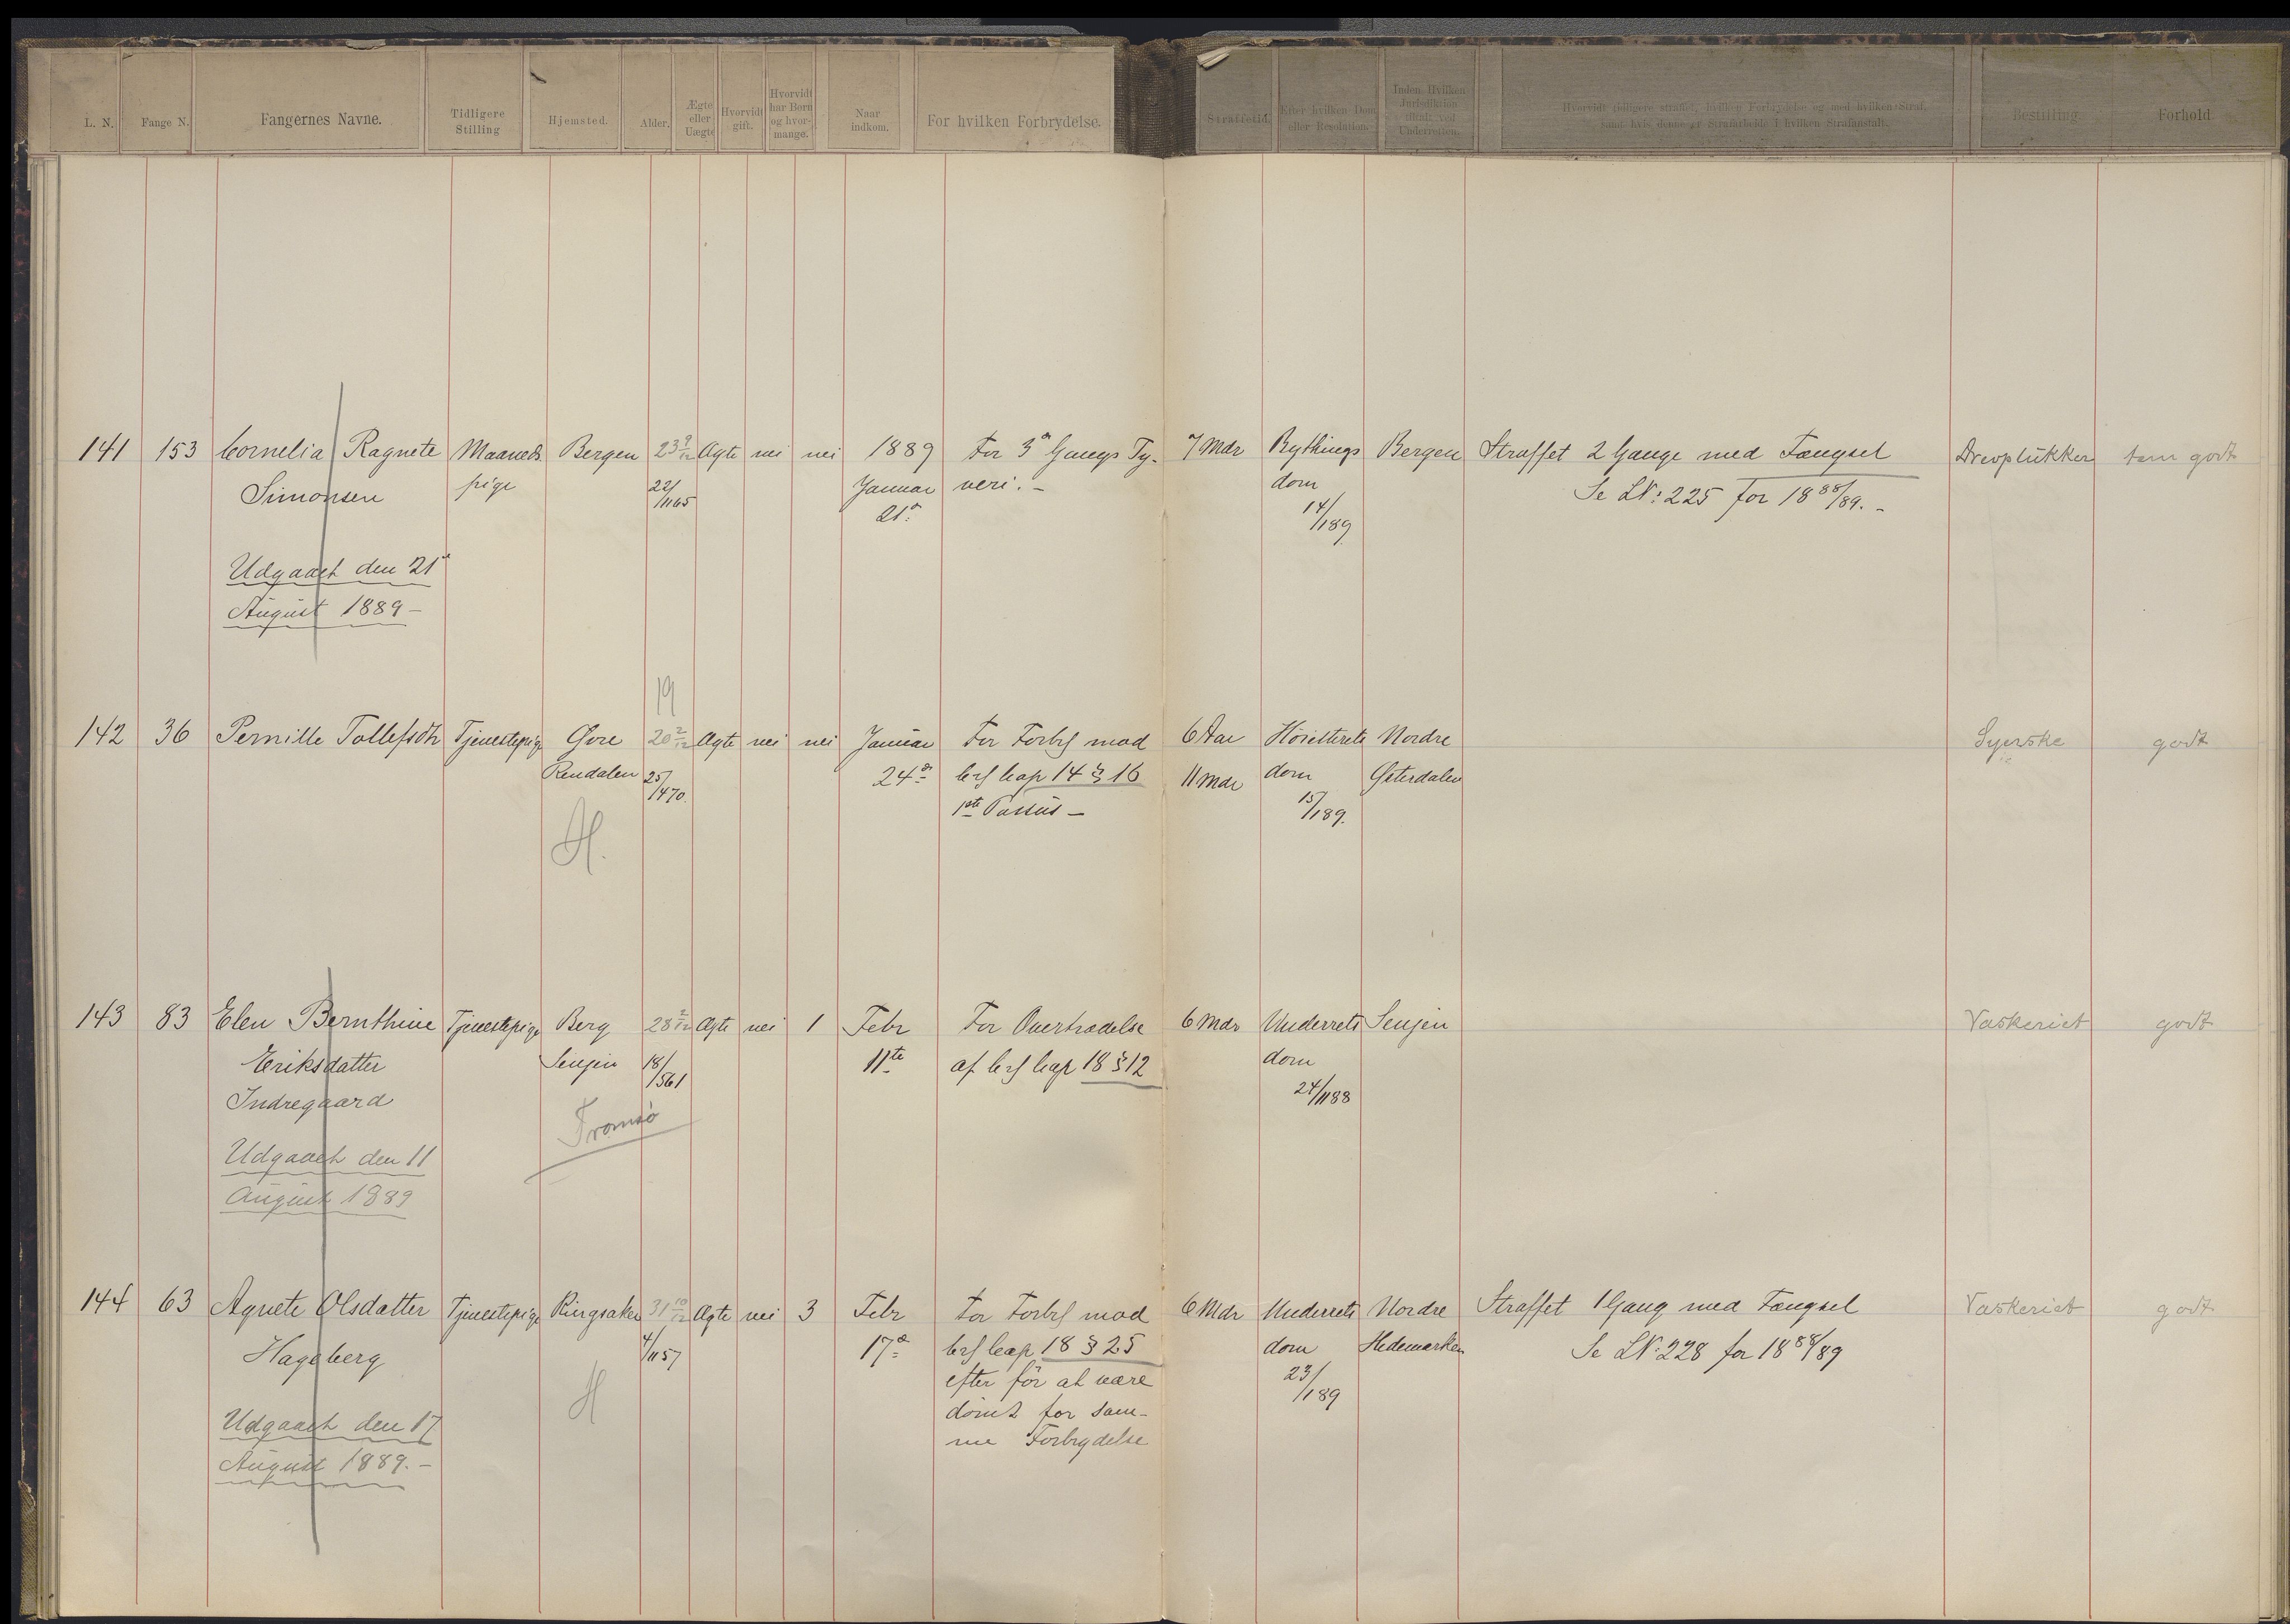 L. N. Fange N. Fangernes Navne. Tidligere Stilling Hjemsted. Alder. Ægte eller Uægte Hvorvidt gift. Hvorvidt har Børn og hvormange. Naar indkom. For hvilken Forbrydelse. Straffetid. Efter hvilken Dom eller Resolution. Inden Hvilken Jurisdiktion tiltalt ved Underretten. Hvorvidt tidligere straffet, hvilken Forbrydelse og med hvilken Straf, samt hvis denne er Strafarbeide i hvilken Strafanstalt. Bestilling Forhold
141 153 Cornelia Ragnete Maaneds Bergen 23 9/12 Ægte nei nei 1889 For 3de Gangs Ty- 7 Mdr Bythings Bergen Straffet 2 Gange med Fængsel Drevplukker tem godt
Simonsen pige 22/1165 Januar veri. - dom Se LN: 225 for 18 88/89. -
21de 14/189
Udgaaet den 21de
August 1889 -
19
142 36 Pernille Tollefsdtr Tjenestepige Øvre 20 2/12 Ægte nei nei Januar For Forbr mod 6 Aar Høiesterets Nordre Syerske godt
Rendalen 25/470. 24de Crl Cap 14 § 16 11 Mdr dom Østerdalen
1ste Passus - 15/189.
H.
143 83 Elen Bernthine Tjenestepige Berg 28 2/12 Ægte nei 1 Febr For Overtrædelse 6 Mdr Underrets Senjen Vaskeriet godt
Eriksdatter Senjen 18/561 11te af Crl Cap 18 § 12 dom
Indregaard 24/1188
Tromsø
Udgaaet den 11
August 1889
144 63 Agnete Olsdatter Tjenestepige Ringsaker 31 10/12 Ægte nei 3 Febr For Forbr mod 6 Mdr Underrets Nordre Straffet 1 Gang med Fængsel Vaskeriet godt
Hageberg 4/1157 17de Crl Cap 18 § 25 dom Hedemarken Se LN: 228 for 18 88/89
H efter før at være 23/189
Udgaaet den 17 dømt for sam-
August 1889. - me Forbrydelse